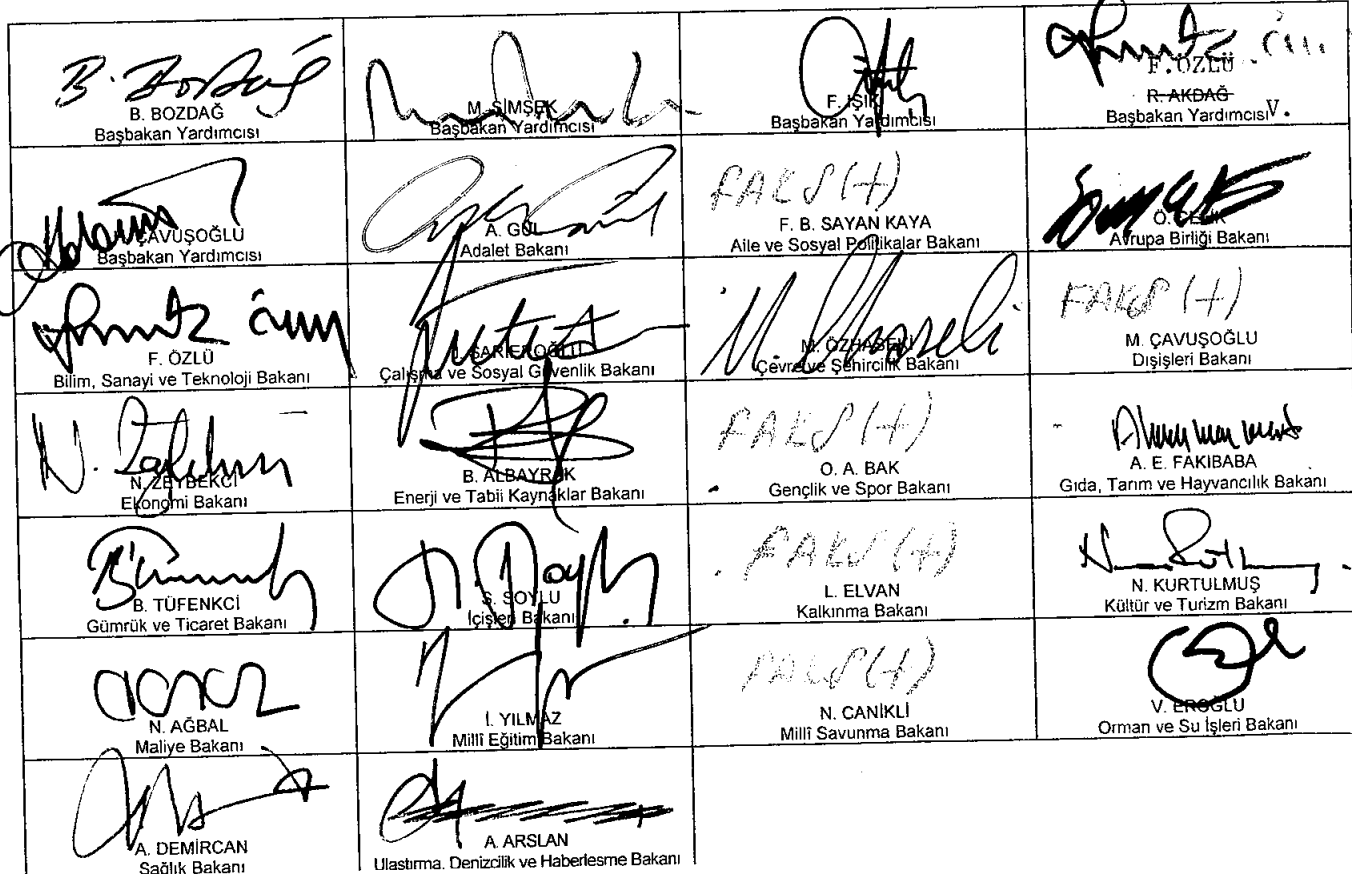 B. BOZDAĞ
Başbakan Yardımcısı
M. ŞİMŞEK
Başbakan Yardımcısı
F. IŞIK
Başbakan Yardımcısı
F. ÖZLÜ
R. AKDAĞ
Başbakan Yardımcısı V.
ÇAVUŞOĞLU
Başbakan Yardımcısı
A. GÜL
Adalet Bakanı
FAKS (+)
F. B. SAYAN KAYA
Aile ve Sosyal Politikalar Bakanı
Ö. ÇELİK
Avrupa Birliği Bakanı
F. ÖZLÜ
Bilim, Sanayi ve Teknoloji Bakanı
SARIEROĞLU
Çalışma ve Sosyal Güvenlik Bakanı
M. ÖZHASEKİ
Çevre ve Şehircilik Bakanı
FAKS (+)
M. ÇAVUŞOĞLU
Dışişleri Bakanı
N. ZEYBEKCİ
Ekonomi Bakanı
B. ALBAYRAK
Enerji ve Tabii Kaynaklar Bakanı
FAKS (+)
O. A. BAK
Gençlik ve Spor Bakanı
A. E. FAKIBABA
Gıda, Tarım ve Hayvancılık Bakanı
B. TÜFENKCİ
Gümrük ve Ticaret Bakanı
S. SOYLU
İçişleri Bakanı
FAKS (+)
L. ELVAN
Kalkınma Bakanı
N. KURTULMUŞ
Kültür ve Turizm Bakanı
N. AĞBAL
Maliye Bakanı
İ. YILMAZ
Millî Eğitim Bakanı
FAKS (+)
N. CANİKLİ
Millî Savunma Bakanı
V. EROĞLU
Orman ve Su İşleri Bakanı
A. DEMİRCAN
Sağlık Bakanı
A. ARSLAN
Ulaştırma, Denizcilik ve Haberleşme Bakanı